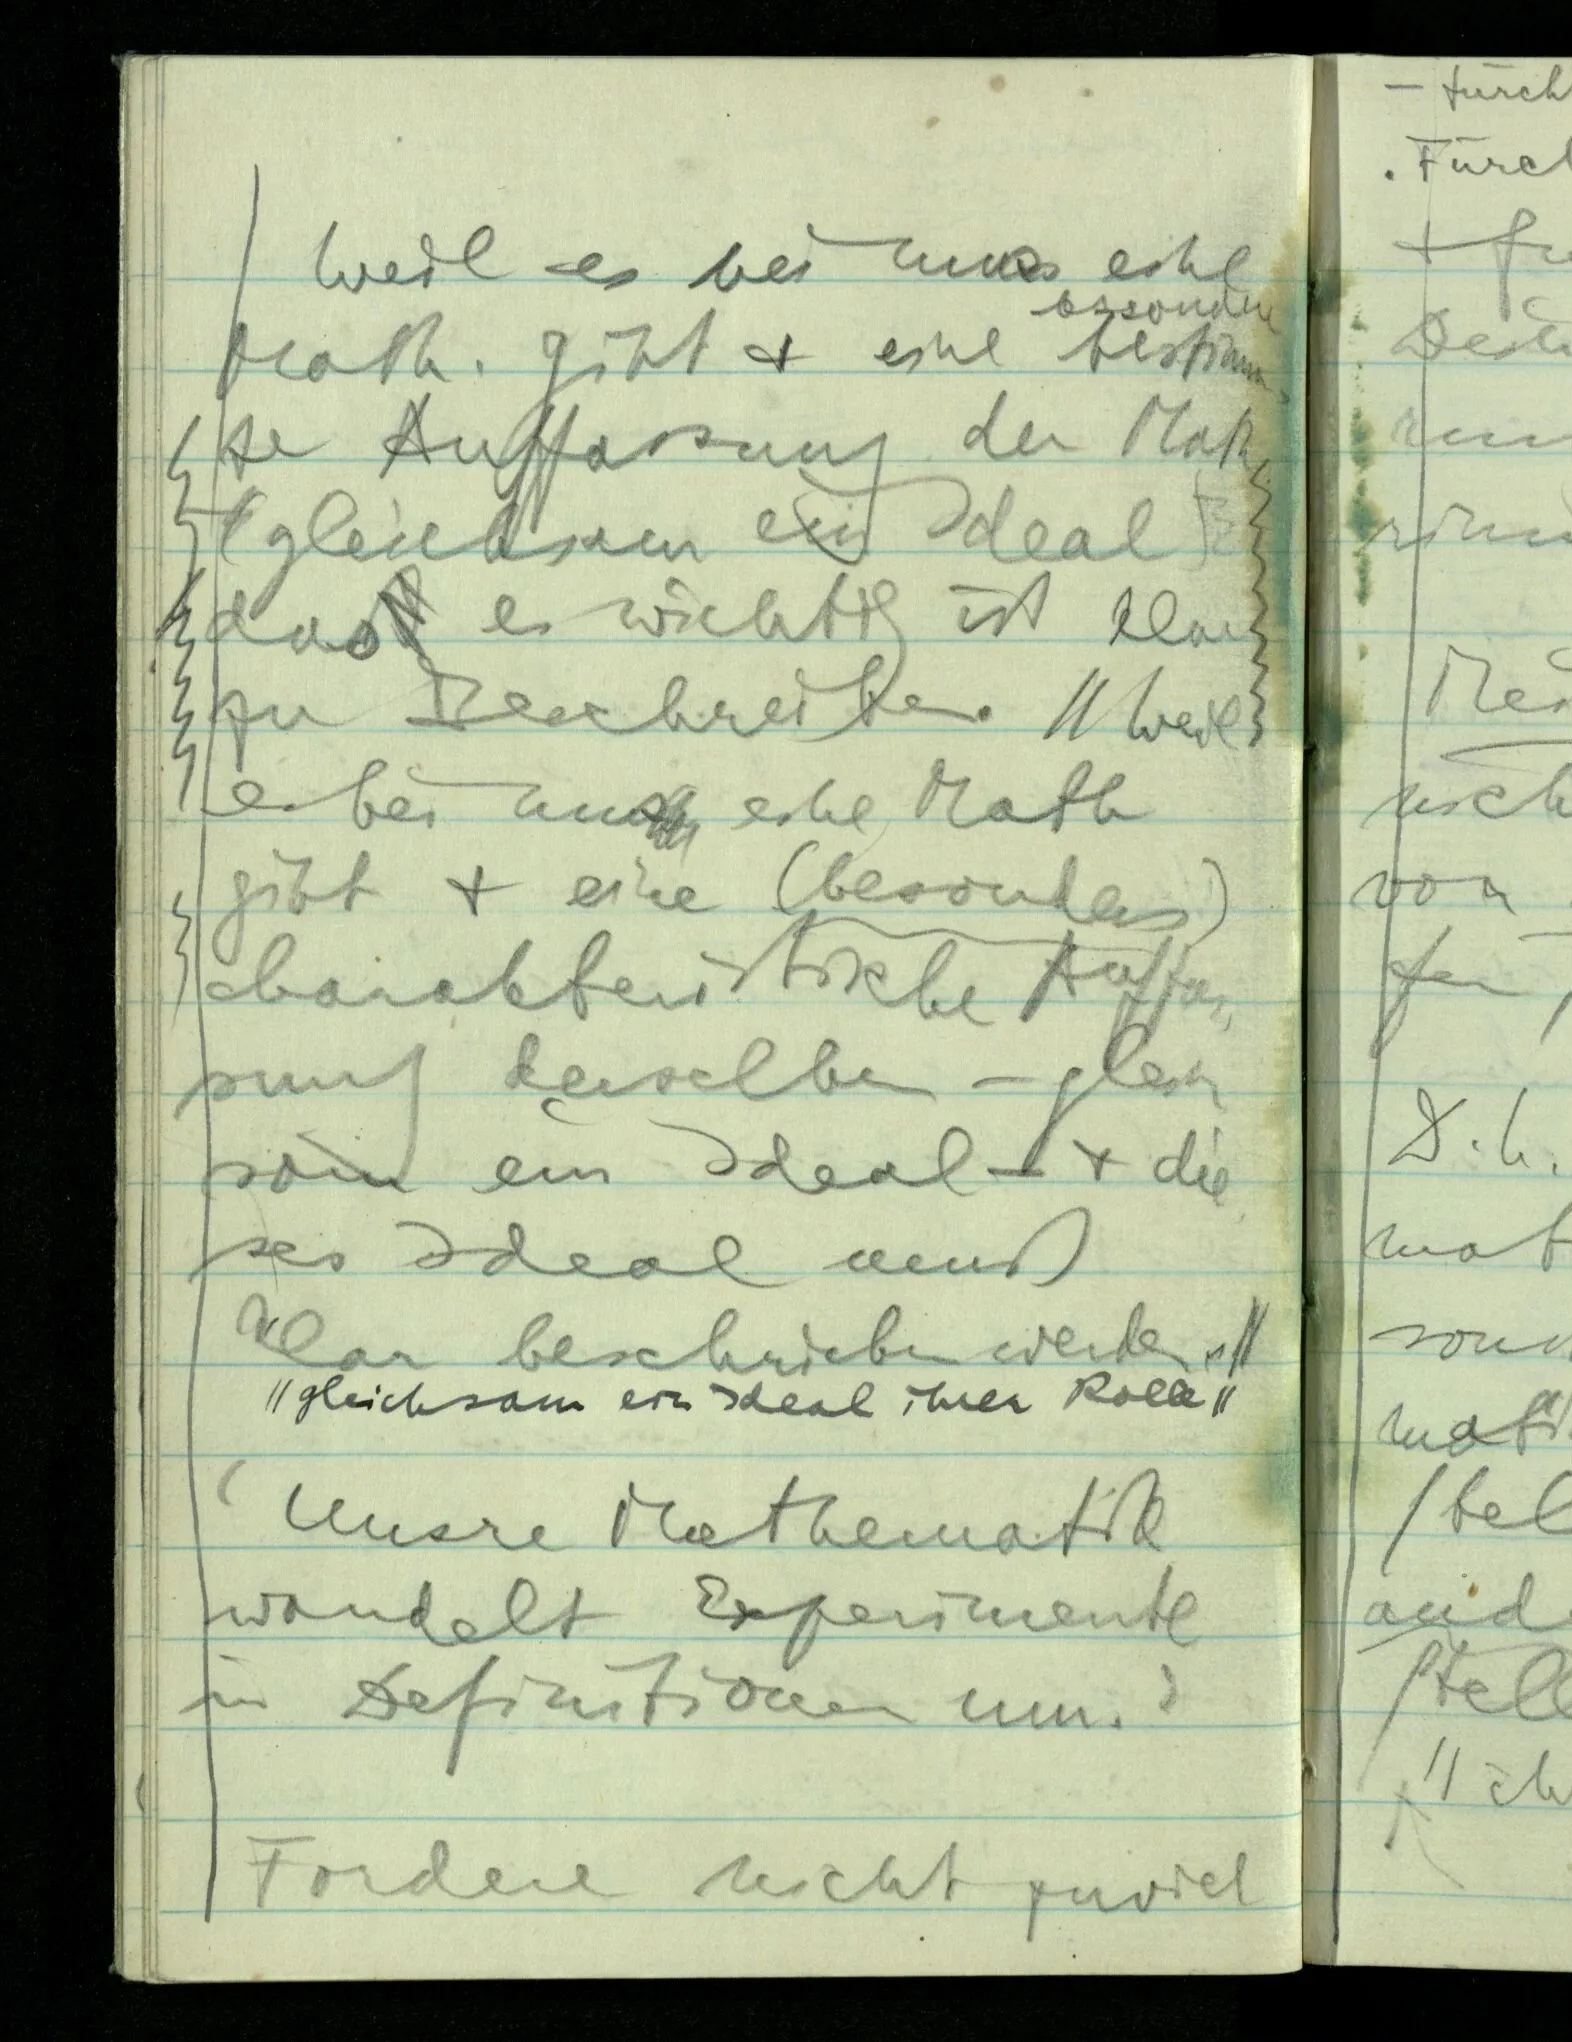 Weil es bei uns eine
besondre
Math. gibt & eine bestimm-
te Auffassung der Math
(gleichsam ein Ideal)
das es wichtig ist klar
zu beschreiben. // Weil
es bei uns eine Math
gibt & eine (besonders)
charakteristische Auffas-
sung derselben – gleich
sam ein Ideal – & die
ses Ideal muß
klar beschrieben werden. //
// gleichsam ein Ideal ihrer Rolle //
Unsre Mathematik
wandelt Experimente
in Definitionen um.
Fordere nicht zuviel
– fürch
. Fürch
+
von
D.h.
mat